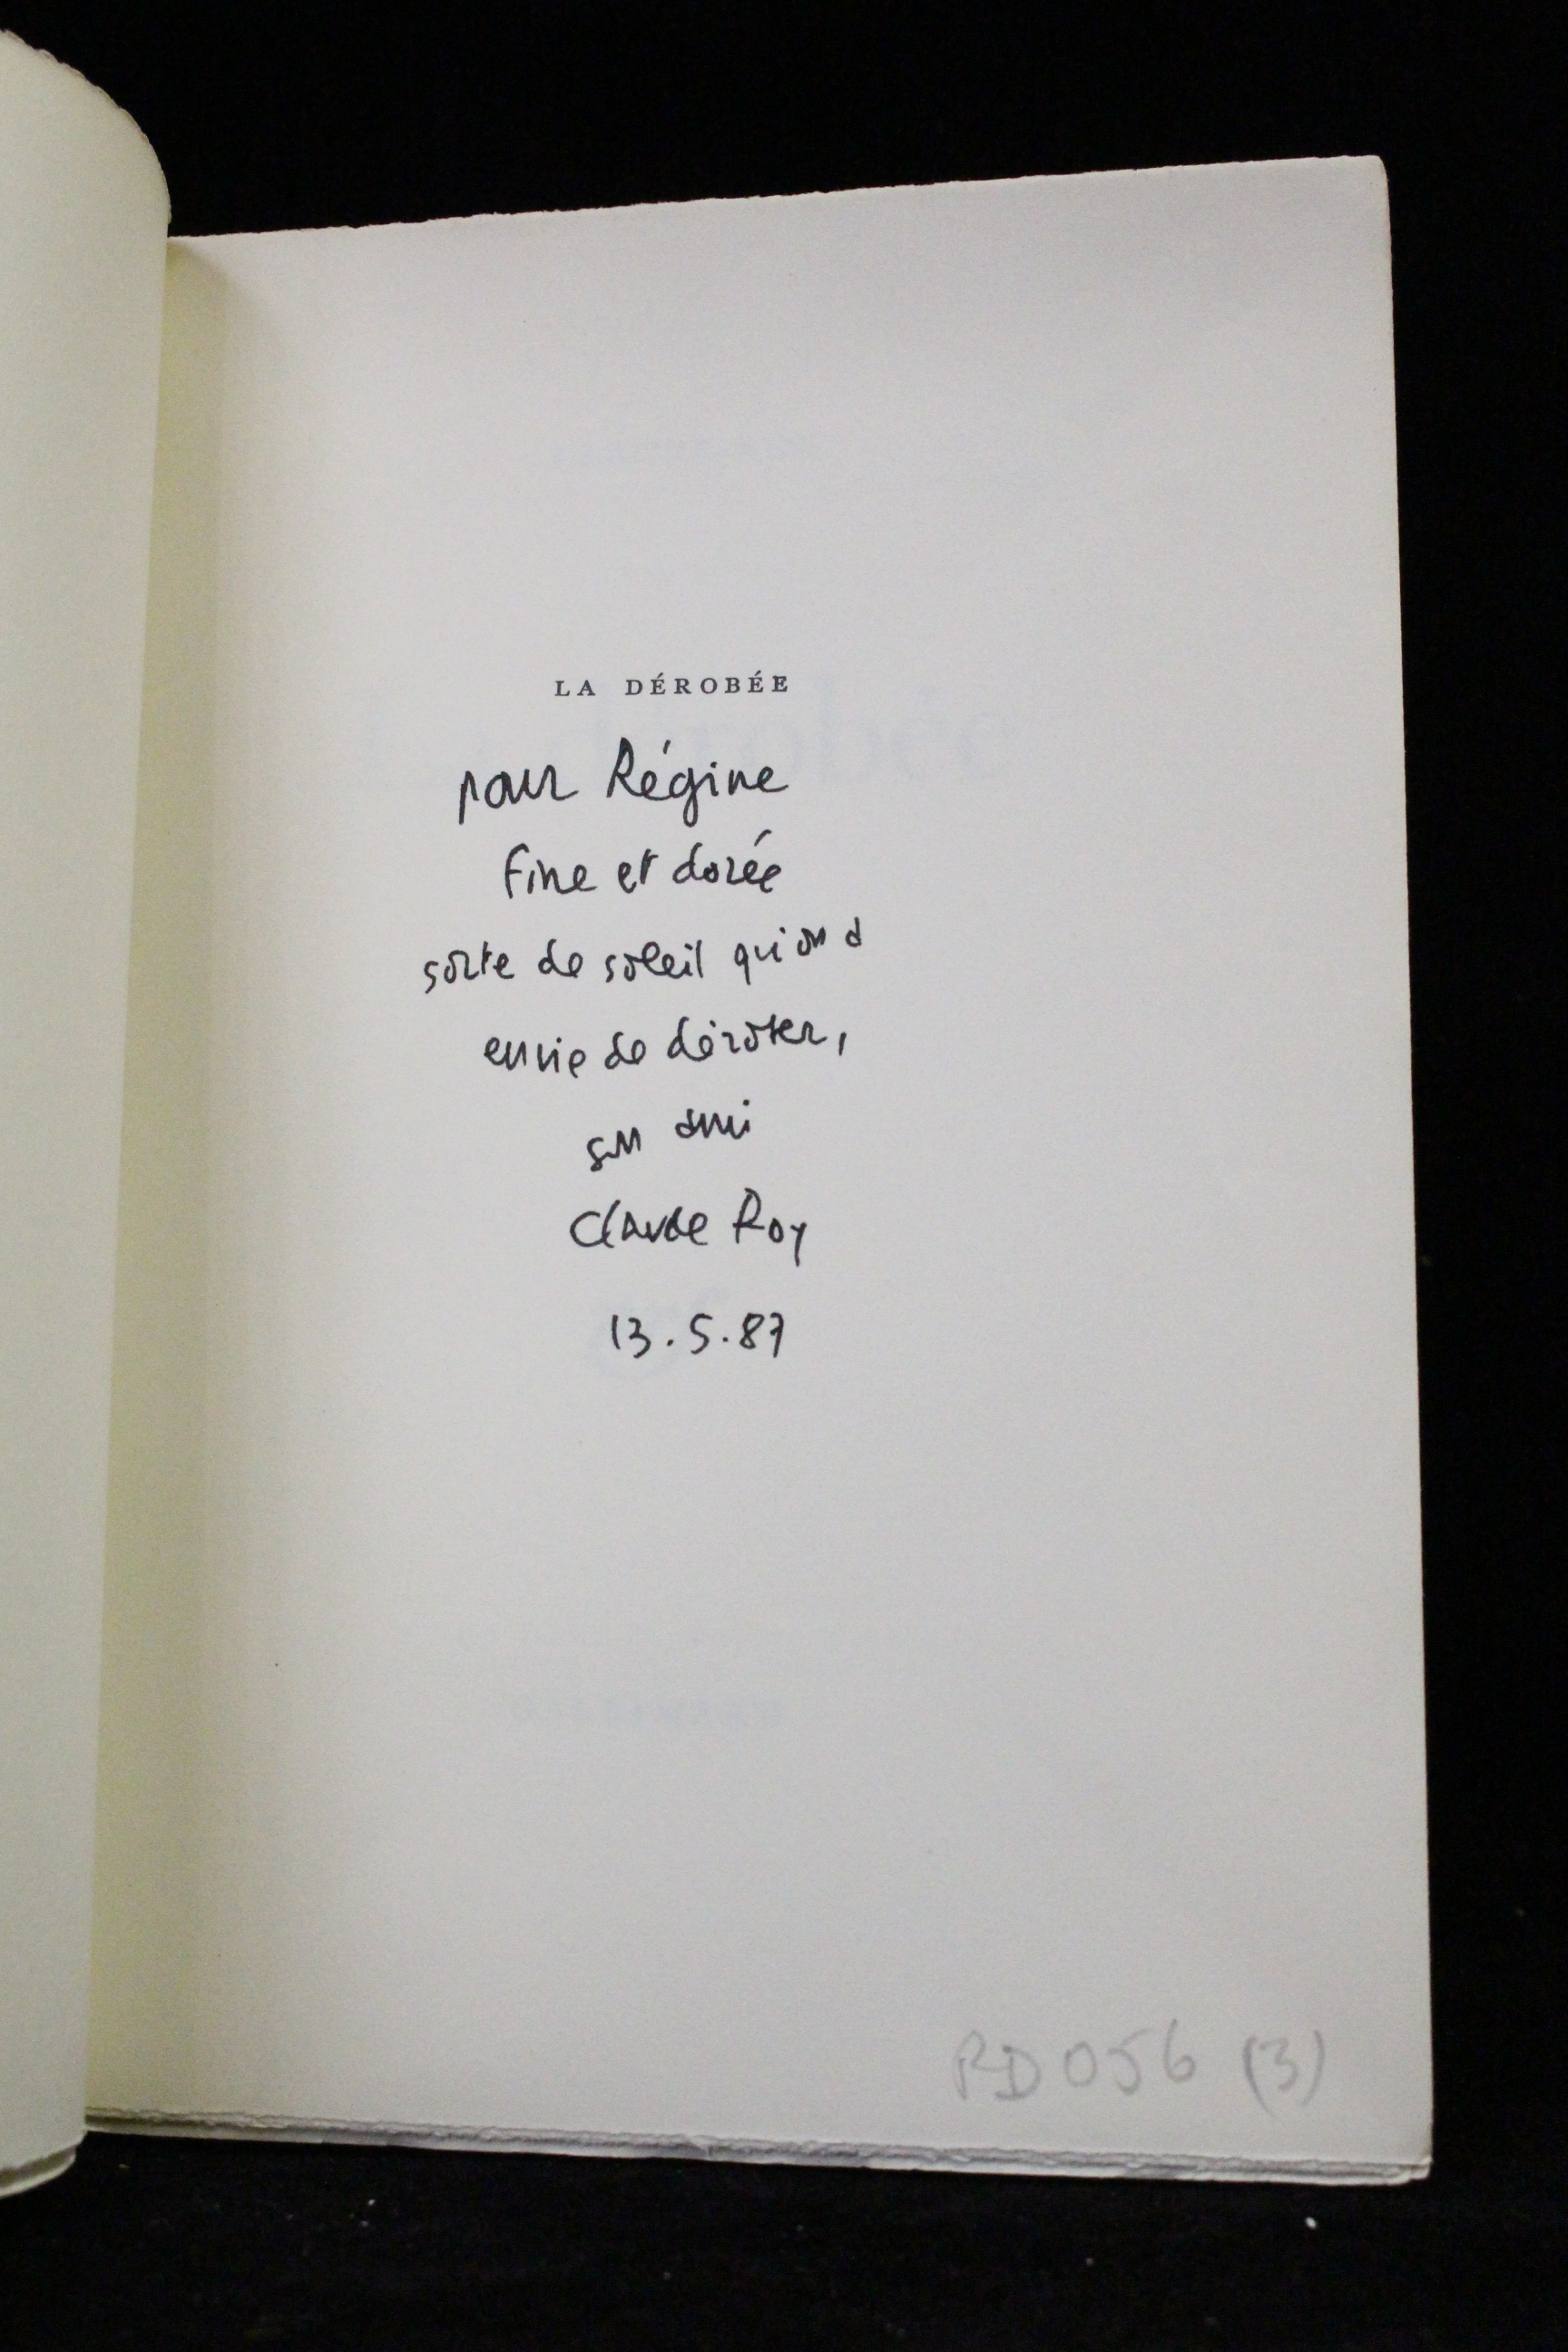 LA DÉROBÉE
pour Régine
fine et dorée
sorte de soleil qu'on a
envie de dérober,
son ami
Claude Roy
13.5.87
RD056 (3)